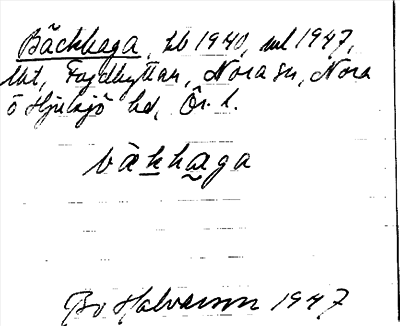 Bäckhaga, hb 1940, ml 1947,
lht, Fogdhyttan, Nora sn, Nora
o Hjulsjö hd, Ör. l.
bä̀khaga
Bo Halvarson 1947